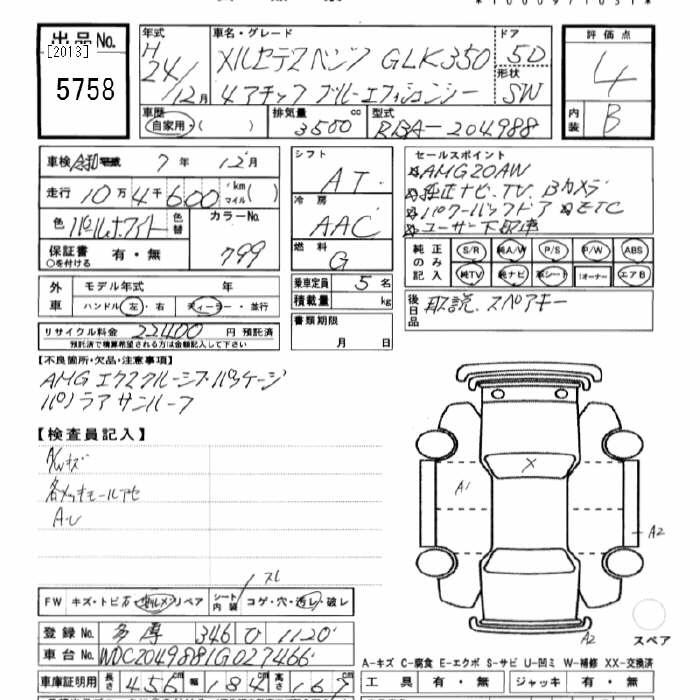 出品No.
[2013]
5758
年式
H
24/12月
車名・グレード
メルセデスベンツ GLK350
4マチック ブルーエフィシェンシー
ドア
5D
形状
SW
評価点
4
内装
B
車歴
自家用・( )
排気量
3500 cc
型式
RBA-204988
車検 令和 7年 12月
走行 10万4千600 km マイル( )
色 パールホワイト 色替
カラーNo.
799
保証書
○を付ける
有・無
シフト
AT
冷房
AAC
燃料
G
セールスポイント
AMG20AW
純正ナビ、TV、Bカメラ
パワーバックドア ETC
ユーザー下取車
純正のみ記入
S/R 純A/W P/S P/W ABS
純TV 純ナビ 革シート 1オーナー エアB
外車
モデル年式 年
ハンドル 左・右 ディーラー・並行
乗車定員 5名
積載量 kg
後日品
取説、スペアキー
リサイクル料金 22400 円 預託済
預託済で精算希望される方は金額記入して下さい
書類期限
月 日
【不良箇所・欠品・注意事項】
AMGエクスクルーシブパッケージ
パノラアサンルーフ
【検査員記入】
A/Wキズ
各メッキモールアセ
A・U
X
A1
A2
A2
スペア
スレ
FW キズ・トビ石・リペア シート内装 コゲ・穴・スレ・破レ
登録No. 多摩 346 ひ 1120
車台No. WDC2049881G027466
A-キズ C-腐食 E-エクボ S-サビ U-凹ミ W-補修 XX-交換済
車庫証明用 長さ 456 幅 184 高
工具 有・無 ジャッキ 有・無